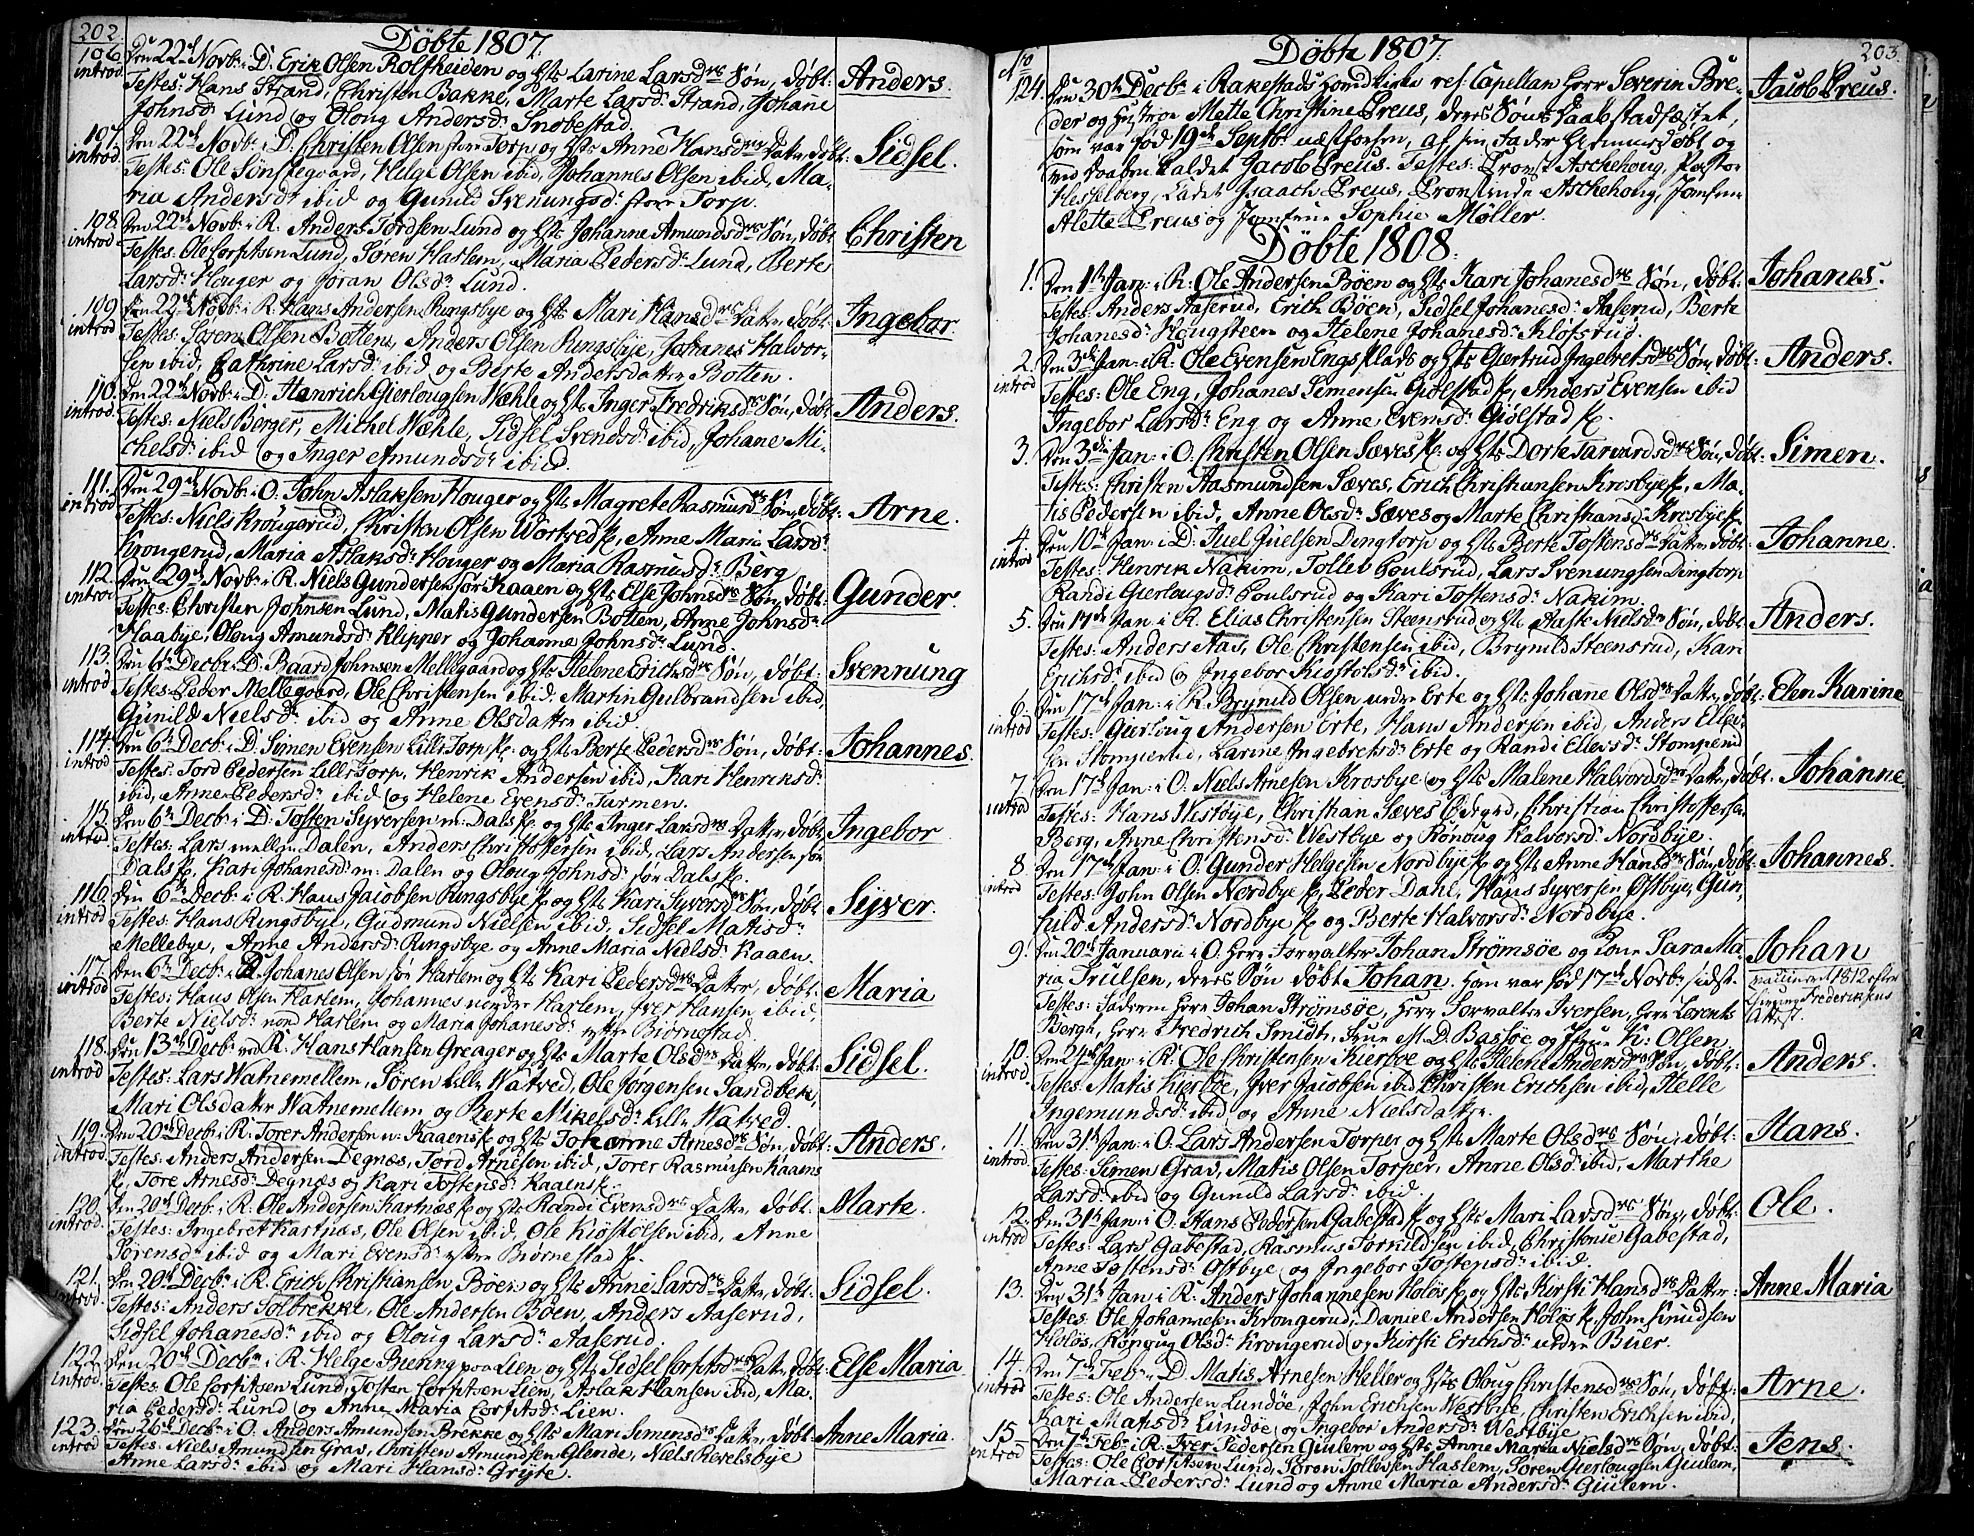 202.
Døbte 1807.
106 introd. Den 22de Novbr i D: Erik Olsen Rolfheiden og Hstr Larine Larsdrs Søn, døbt: Anders.
Testes: Hans Strand, Christen Bakke, Marte Larsdr Strand, Johane
Johnsdr Lund og Oloug Andersdr Snobestad.
107 introd. Den 22de Novbr i D: Christen Olsen store Torp og Hstr Anne Hansdrs Datter, døbt: Sidsel.
Testes: Ole Sønstegaard, Helge Olsen ibid, Johannes Olsen ibid, Ma-
ria Andersdr ibid og Gunild Svenungsdr store Torp.
108 introd. Den 22de Novbr i R. Anders Tordsen Lund og Hstr Johanne Amundsdrs Søn, døbt Christen
Testes: Ole Corfitsen Lund, Søren Haslem, Maria Pedersdr Lund, Berte
Larsdr Houger og Jøran Olsdr Lund.
109 introd. Den 22de Novbr i R. Hans Andersen Rungsbye og Hstr Mari Hansdrs Datter, døbt: Ingebor.
Testes: Søren Olsen Botten, Anders Olsen Rungsbye, Johanes Halvor-
sen ibid, Cathrine Larsdr ibid og Berte Andersdatter Botten.
110. introd. Den 22de Novbr i D: Henrich Gierlougsen Wæhle og Hstr Inger Fredriksdrs Søn, døbt Anders.
Testes: Niels Berger, Michel Wæhle, Sidsel Svendsdr ibid, Johane Mi-
chelsdr ibid og Inger Amundsdr ibid.
111. introd. Den 29de Novbr i O: John Aslaksen Houger og Hstr Magrete Rasmusdrs Søn, døbt: Arne.
Testes: Niels Krougerud, Christen Olsen Wortvedpl, Anne Maria Larsdr
Krongerud, Maria Aslaksdr Houger og Maria Rasmusdr Berg
112. introd Den 29de Novbr i R. Niels Gundersen sør Kaaen og Hstr Else Johnsdrs Søn, døbt: Gunder.
Testes: Christen Johnsen Lund, Matis Gundersen Botten, Anne Johnsdr
Haabye, Oloug Amundsdr Klipper og Johanne Johnsdr Lund.
113. introd Den 6te Decbr i D: Baard Johnsen Mellegaard og Hstr Helene Ericksdrs Søn, døbt: Svennung
Testes: Peder Mellegaard, Ole Christensen ibid, Martin Gulbrandsen ibid,
Gunild Nielsdr ibid og Anne Olsdatter ibid
114. introd Den 6te Decbr i D. Simen Evensen Lille Torp pl. og Hstr Berte Pedersdrs Søn, døbt: Johannes.
Testes: Tord Pedersen Lille Torp, Henrik Andersen ibid, Kari Henriksdr
ibid, Anne Pedersdr ibid og Helene Evensdr Tarmen.
115. introd. Den 6te Decbr i D: Tosten Syversen m: Dals pl. og Hstr Inger Larsdrs Datter, døbt Ingebor
Testes: Lars mellem Dalen, Anders Christoffersen ibid, Lars Andersen sør
Dals pl. Kari Johanesdr m: Dalen og Oloug Johnsdr sør Dals pl.
116. introd Den 6te Decbr i R. Hans Jacobsen Rungsbye pl og Hstr Kari Syversdrs Søn, døbt Syver.
Testes: Hans Ringsbye, Gudmund Nielsen ibid, Sidsel Matisdr
Mellebye, Anne Andersdr Ringsbye og Anne Maria Nielsdr Kaaen.
117. introd Den 6te Decbr i R. Johanes Olsen sør Harlem og Hstr Kari Pedersdrs Datter, døbt: Maria
Testes: Hans Olsen Harlem, Johannes nordre Harlem, Iver Hansen ibid,
Berte Nielsdr nord Harlem og Maria Johanesdr østre Biørnestad.
118. introd Den 13de Decbr ved R. Hans Hansen Greager og Hstr Marte Olsdrs Datter, døbt: Sidsel.
Testes: Lars Watnemellem, Søren Lille Watved, Ole Jørgensen Sandbek,
Mari Olsdatter Watnemellem og Berte Mikelsdr Lille Watved.
119. introd Den 20de Decbr i R: Torer Andersen n: Kaaens pl og Hstr Johanne Arnesdrs Søn, døbt: Anders.
Testes: Anders Andersen Degnæs, Tord Arnesen ibid, Torer Rasmusen Kaaens
pl, Tore Arnesdr Degnæs og Kari Tostensdr Kaaens pl.
120. introd. Den 20de Decbr i R. Ole Andersen Kartnæs pl og Hstr Randi Evensdrs Datter, døbt: Marte.
Testes: Ingebret Kartnæs, Ole Olsen ibid, Ole Kiøstolsen ibid, Anne
Sørensdr ibid og Mari Evensdr østre Biørnestad pl.
121. introd. Den 20de Decbr i R. Erich Christiansen Bøen og Hstr Anne Larsdrs Datter, døbt: Sidsel.
Testes: Anders Solbrekke, Ole Andersen Bøen, Anders Aaserud,
Sidsel Johanesdr ibid og Oloug Larsdr Aaserud.
122. introd. Den 20de Decbr i R. Helge Biering paa Lien og Hstr Sidsel Corfitsdrs Datter, døbt: Else Maria
Testes: Ole Corfitsen Lund, Tosten Corfitsen Lien, Aslak Hansen ibid, Ma-
ria Pedersdr Lund og Anne Maria Corfitsdr Lien.
123. introd Den 26de Decbr i O. Anders Amundsen Brekke og Hstr Mari Simensdrs Datter, døbt: Anne Maria.
Testes: Niels Amundsen Grav, Christen Amundsen Glende, Niels Revelsbye
Anne Larsdr ibid og Mari Hansdr Gryte.
203
Døbte 1807.
No
124. Den 30te Decbr i Rakestads Hovedkirke res: Capellan Herr Severin Bre- Jacob Preus.
der og Hustrue Mette Christine Preus, deres Søns Daab stadfæstet,
som var fød 19de Septbr næstforren, af sin Fader hiemmedøbt og
ved Daaben kaldet Jacob Preus. Testes: Provst Aschehoug, Pastor
Hesselberg, Cadet Isaach Preus, Provstinde Aschehoug, Jomfrue
Alette Preus og Jomfrue Sophie Møller.
Døbte 1808.
1. Den 1te Jan: i R: Ole Andersen Bøen og Hstr Kari Johanesdrs Søn, døbt: Johanes.
Testes: Anders Aaserud, Erich Bøen, Sidsel Johanesdr Aaserud, Berte
Johanesdr Hougsteen og Helene Johanesdr Klofstrud.
2. introd Den 3de Jan: i R: Ole Evensen Engs Plads og Hstr Giertrud Ingebretsdrs Søn, døbt: Anders.
Testes: Ole Eng, Johanes Semensen Giølstad pl, Anders Evensen ibid
Ingebor Larsdr Eng og Anne Evensdr Giølstad pl.
3. Den 3die Jan: i O: Christen Olsen Sæves pl. og Hstr Dorte Tarvardsdrs Søn, døbt: Simen.
Testes: Christen Aasmundsen Sæves, Erich Christiansen Krosbye pl., Ma-
tis Pedersen ibid, Anne Olsdr Sæves og Marte Christiansdr Krosbye pl.
4. introd Den 10de Jan: i D: Juel Juelsen Dingtorp og Hstr Berte Tostensdrs Datter, døbt: Johanne.
Testes: Henrik Nakim, Tollev Poulsrud, Lars Svenungsen Dingtorp
Randi Gierlougsdr Poulsrud og Kari Tostensdr Nakim.
5. Den 17de Jan: i R. Elias Christensen Steensrud og Hstr Aaste Nielsdrs Søn, døbt: Anders.
Testes: Anders Aas, Ole Christensen ibid, Brynild Steensrud, Kari
Erichsdr ibid og Ingebor Kiøstolsdr ibid.
6. introd Den 17de Jan: i R. Brynild Olsen nedre Erte og Hstr Johane Olsdrs Datter, døbt: Elen Karine
Testes: Gierloug Andersen Erte, Hans Andersen ibid, Anders Ellev-
sen Stomperud, Larine Ingebretsdr Erte og Randi Ellevsdr Stomperud
7. introd Den 17de Jan: i O. Niels Arnesen Krosbye og Hstr Malene Halvordsdrs Datter, døbt. Johanne
Testes: Hans Westbye, Christian Sæves Ødegrd, Christian Christoffersen
Berg, Anne Christensdr Westbye og Rønoug Halvorsdr Nordbye.
8 introd Den 17de Jan: i O: Gunder Helgesen Nordbye pl og Hstr Anne Hansdrs Søn, døbt: Johannes.
Testes: John Olsen Nordbye pl, Peder Dahl, Hans Syversen Østbye, Gun-
hild Andersdr Nordbye pl og Berte Halvorsdr Nordbye.
9. Den 20de Januarii i O. Herr Forvalter Johan Strømsøe og Kone Sara Ma- Johan
ria Truelsen, deres Søn døbt Johan. Han var fød 17de Novbr sidst. vaccineret 1812 efter
Testes: Faderen Herr Johan Strømsøe, Herr Forvalter Iversen, Herr Lorents Frederikkes
Bergh, Herr Fredrich Smidt, Frue M. D. Bassøe og Jfrue K: Olsen Attest.
10. introd. Den 24de Jan: i R: Ole Christensen Kierbøe og Hstr Helene Andersdrs Søn, døbt: Anders.
Testes: Matis Kierbøe, Iver Jacobsen ibid, Christen Erichsen ibid, Helle
Ingemundsdr ibid og Anne Nielsdatter.
11. introd. Den 31te Jan: i O: Lars Andersen Torper og Hstr Marte Olsdrs Søn, døbt: Hans.
Testes: Simen Grav, Matis Olsen Torper, Anne Olsdr ibid, Marthe
Larsdr ibid og Gunild Larsdr ibid.
12. introd Den 31te Jan: i O: Hans Pedersen Gabestad pl og Hstr Mari Larsdrs Søn, døbt: Ole.
Testes: Lars Gabestad, Rasmus Torkildsen ibid, Christine Gabestad,
Anne Tostensdr Østbye og Ingebor Tostensdr ibid.
13. Den 31te Jan: i R: Anders Johannesen Holøs pl og Hstr Kirsti Hansdrs Datter: Anne Maria
Testes: Ole Johannesen Krongerud, Daniel Andersen Holøs pl, John Knudsen
Holøs, Rønoug Olsdr Krongerud og Kirsti Erichsdr nedre Buer.
14. introd Den 7de Febr i D. Matis Arnesen Heller og Hstr Oloug Christensdrs Søn, døbt: Arne.
Testes: Ole Andersen Lundøe, John Erichsen Westbye, Christen Erichsen ibid,
Kari Matisdr Lundøe og Ingebor Andersdr Westbye.
15 introd Den 7de Febr i R. Iver Pedersen Giulem og Hstr Anne Maria Nielsdrs Søn, døbt: Jens.
Testes: Ole Corfitsen Lund, Søren Tollevsen Haslem, Søren Gierlougsen Giulem,
Maria Pedersdr Lund og Anne Maria Andersdr Giulem.